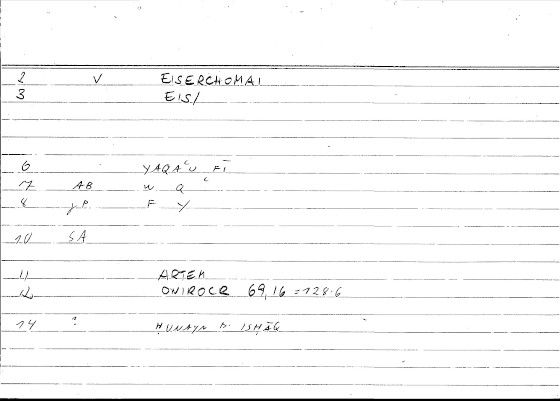 2 V EISERCHOMAI
3 EIS/
6 YAQAʿU FĪ
7 AB W Q ʿ
8 jP F Y
10 SA
11 ARTEM
12 ONIROCR 69,16 = 128.6
14 ? ḤUNAYN B. ISḤĀQ